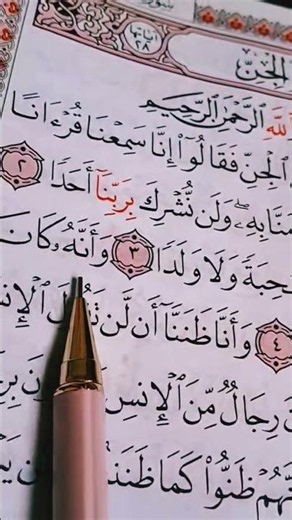 آياتها
٢٨
الجِنّ
ٱللَّهِ ٱلرَّحْمَٰنِ ٱلرَّحِيمِ
ٱلْجِنِّ فَقَالُوٓا۟ إِنَّا سَمِعْنَا قُرْءَانًا
مَنَّا بِهِۦ ۖ وَلَن نُّشْرِكَ بِرَبِّنَآ أَحَدًا ٢
حِبَةً وَلَا وَلَدًا ٣ وَأَنَّهُۥ كَانَ
٤ وَأَنَّا ظَنَنَّآ أَن لَّن
رِجَالٌ مِّنَ ٱلْإِنسِ
ظَنُّوا۟ كَمَا